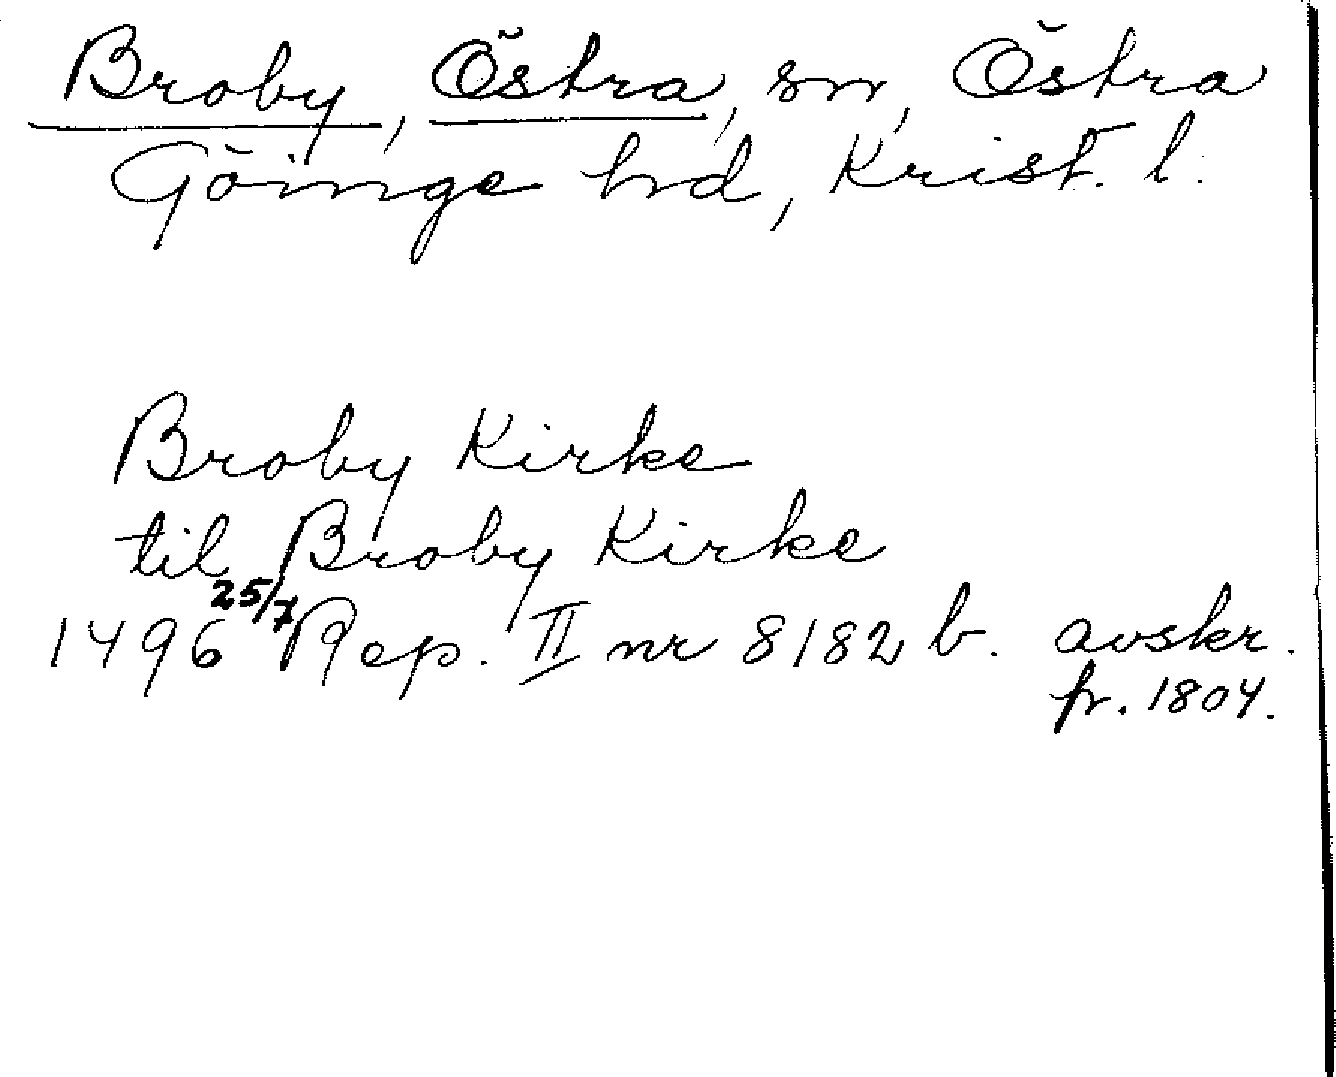 Broby, Östra, sn, Östra
Göinge hrd, Krist. l.
Broby Kirke
til Broby Kirke
1496 25/7 Rep. II nr 8182 b. avskr.
fr. 1804.